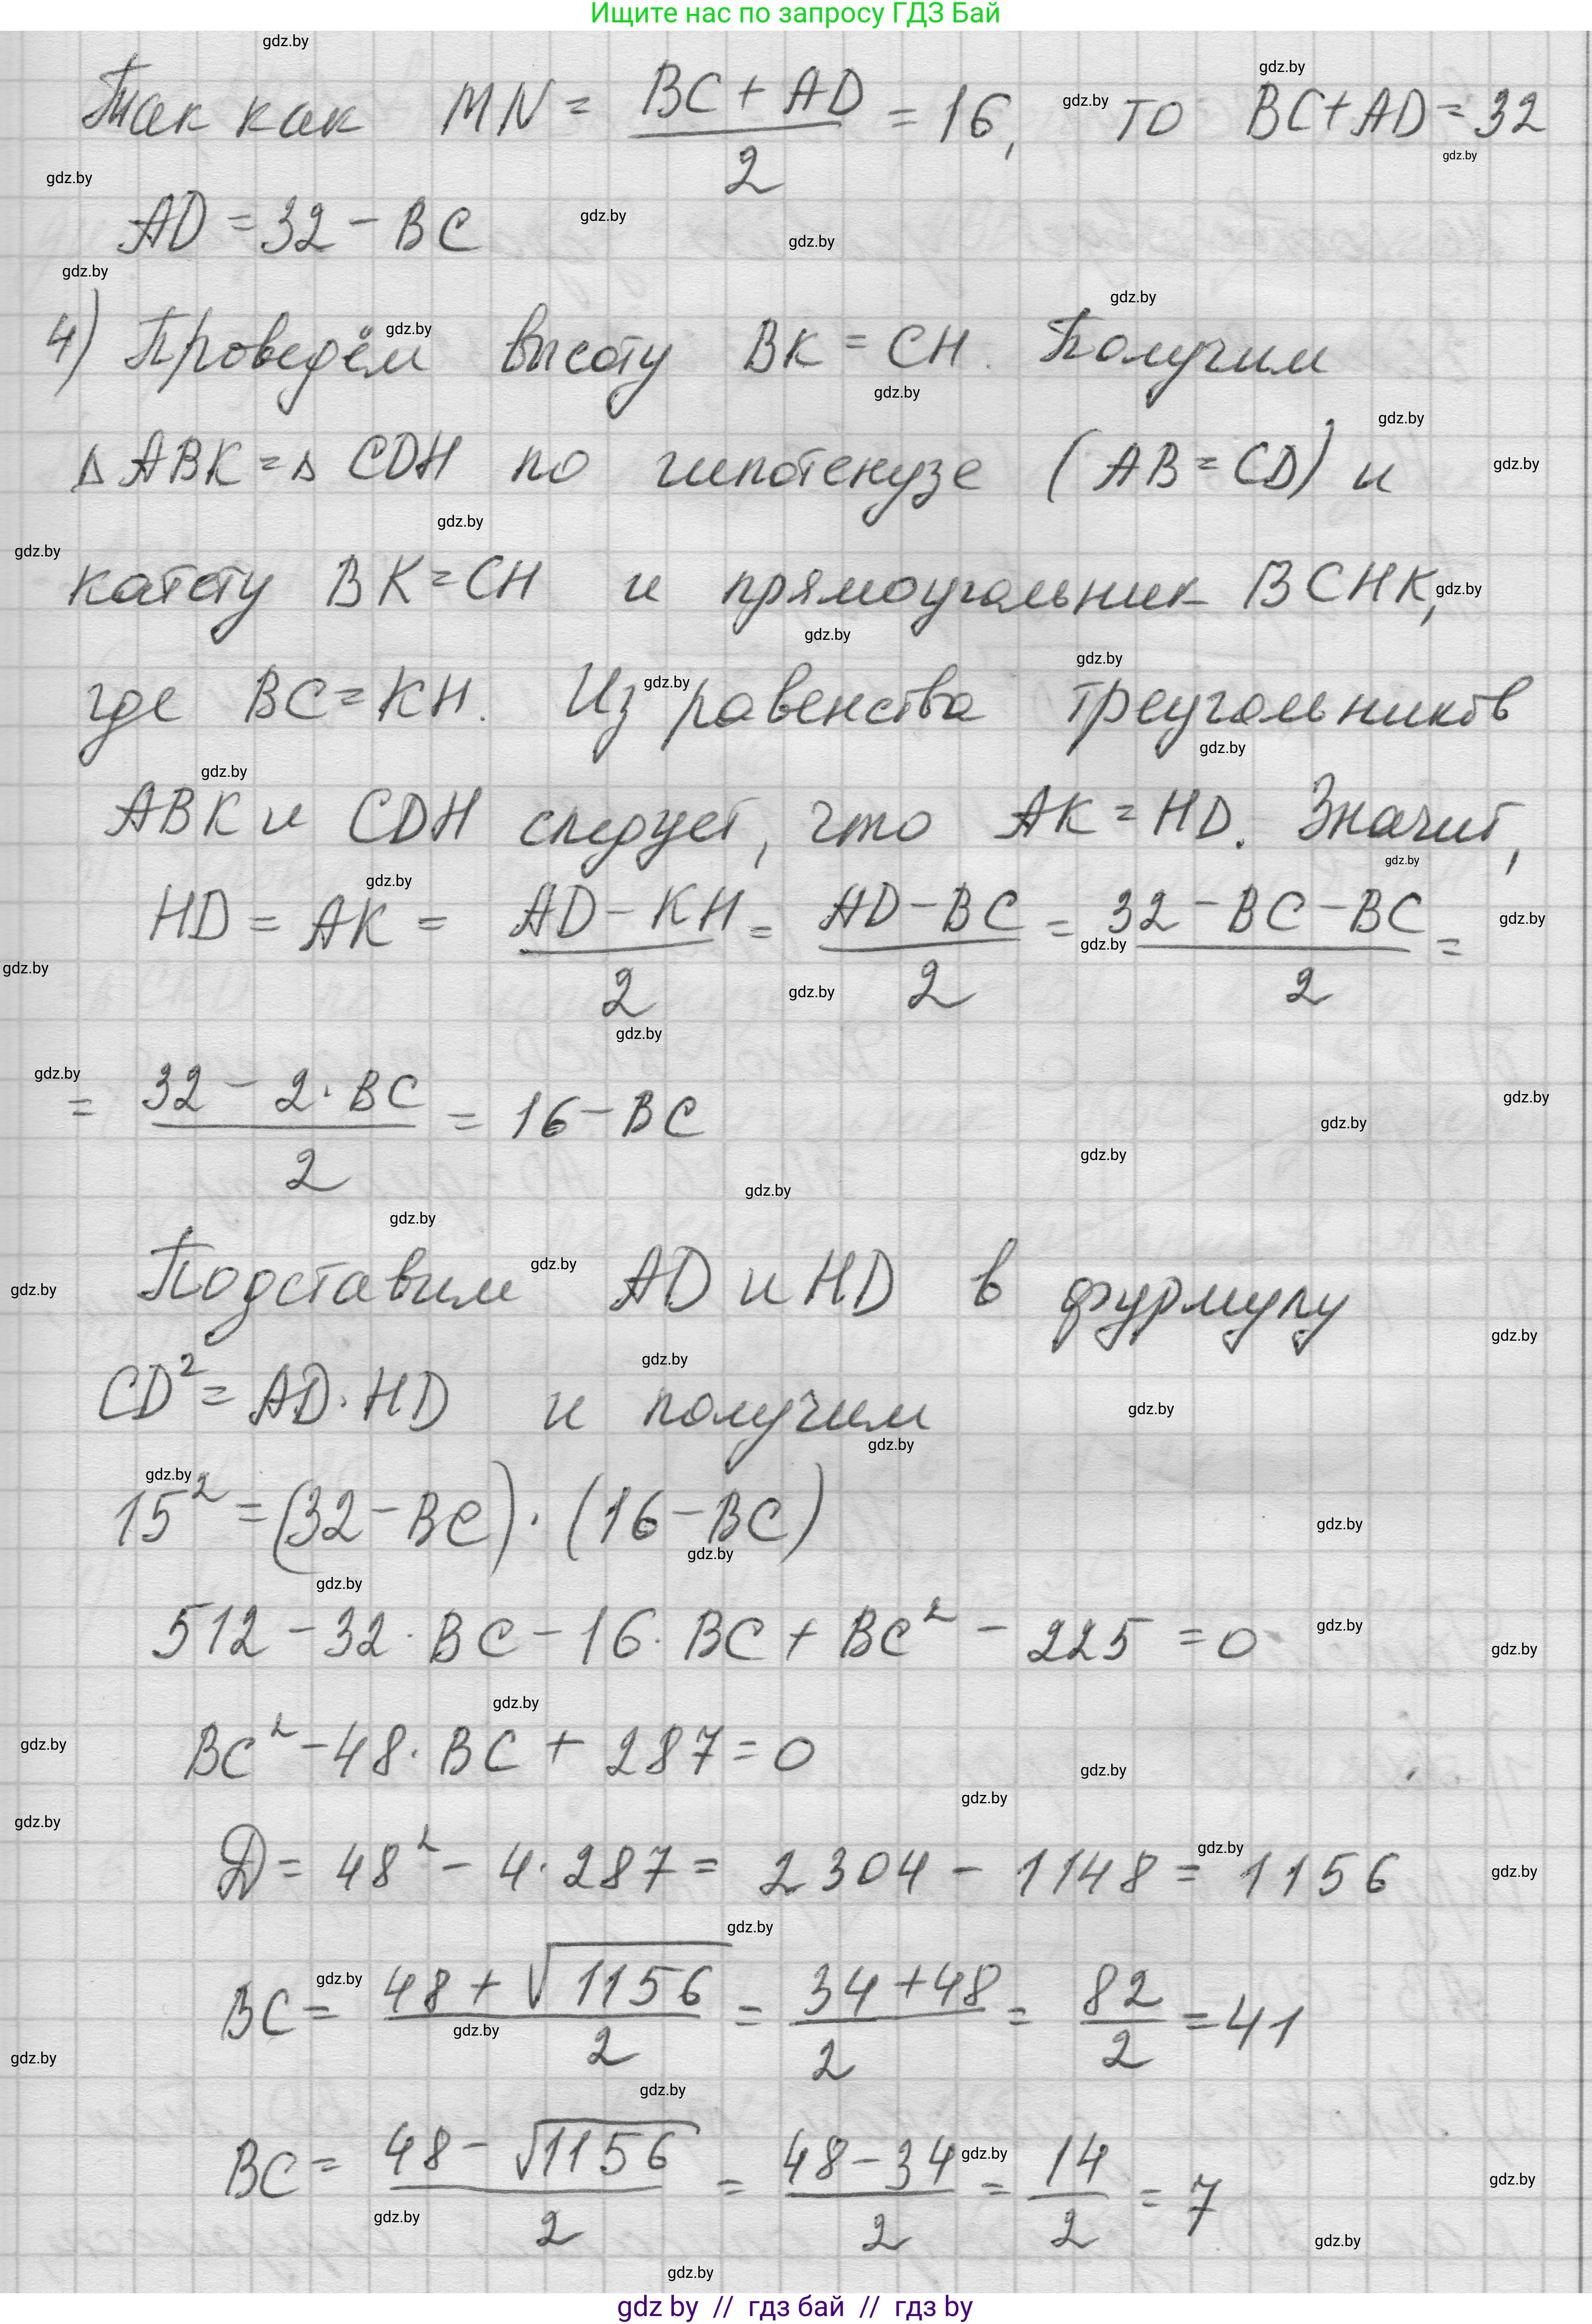 Ищите нас по запросу ГДЗ Бай
Так как MN = (BC + AD)/2 = 16, то BC + AD = 32
AD = 32 - BC
4) Проведём высоту BK = CH. Получим
Δ ABK = Δ CDH по гипотенузе (AB = CD) и
катету BK = CH и прямоугольник BCHK,
где BC = KH. Из равенства треугольников
ABK и CDH следует, что AK = HD. Значит,
HD = AK = (AD - KH)/2 = (AD - BC)/2 = (32 - BC - BC)/2 =
= (32 - 2·BC)/2 = 16 - BC
Подставим AD и HD в формулу
CD² = AD·HD и получим
15² = (32 - BC)·(16 - BC)
512 - 32·BC - 16·BC + BC² - 225 = 0
BC² - 48·BC + 287 = 0
D = 48² - 4·287 = 2304 - 1148 = 1156
BC = (48 + √1156)/2 = (34 + 48)/2 = 82/2 = 41
BC = (48 - √1156)/2 = (48 - 34)/2 = 14/2 = 7
gdz by // гдз бай // гдз by